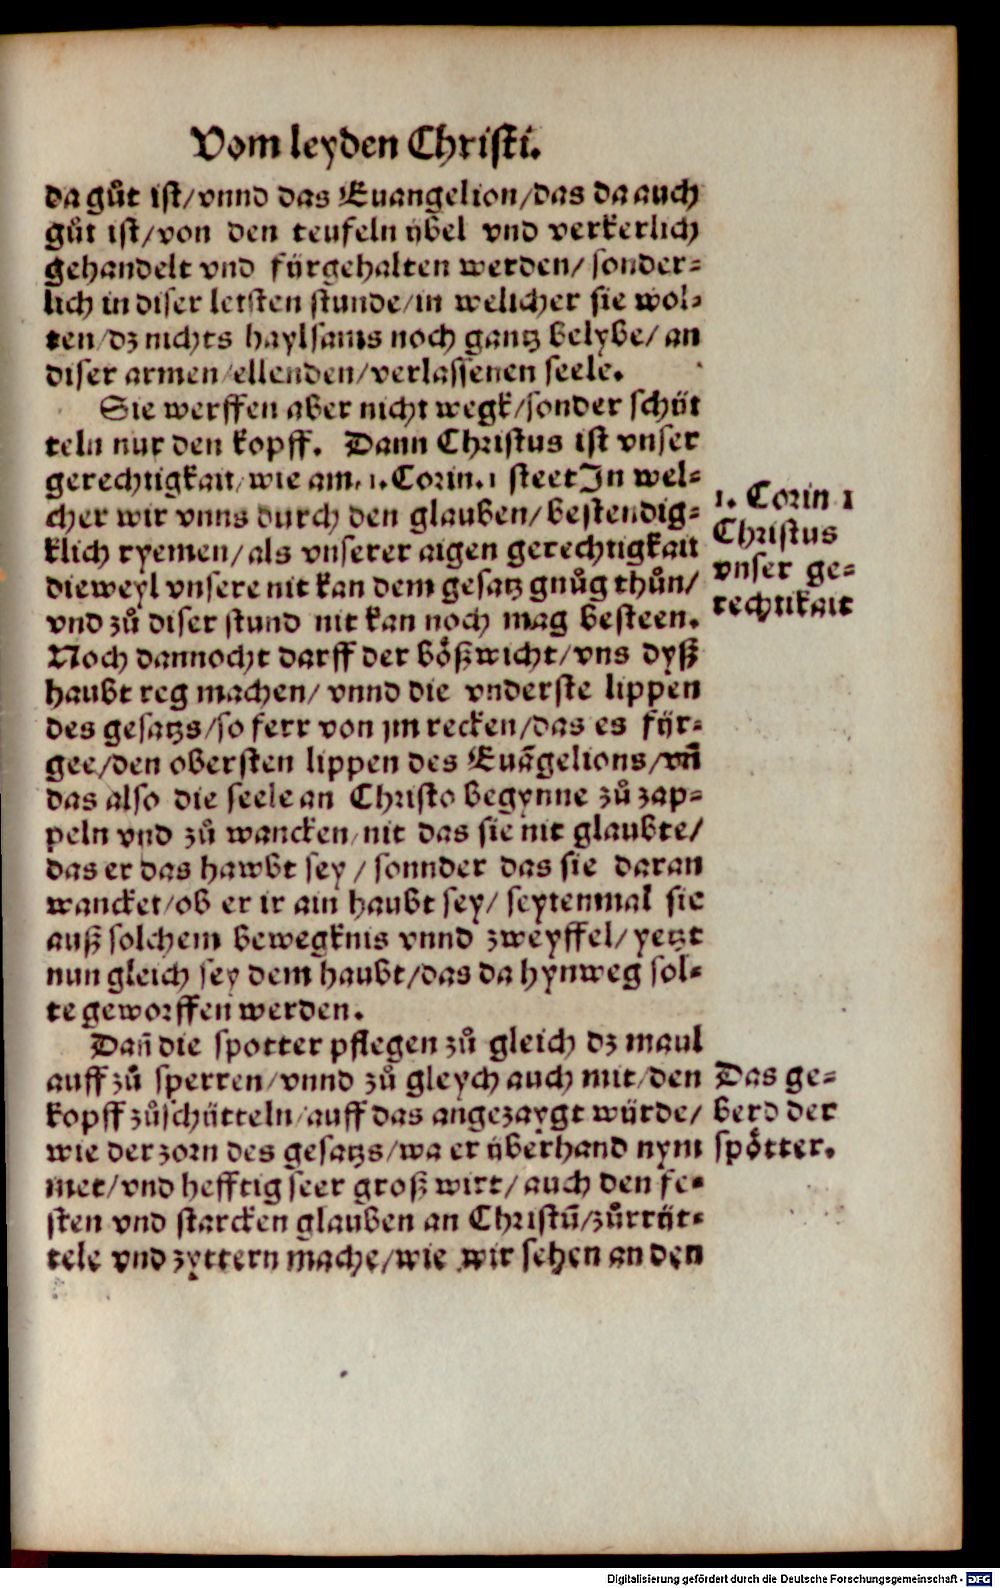 Vom leyden Christi.
da gůt ist/vnnd das Euangelion/das da auch
gůt ist/von den teufeln übel vnd verkerlich
gehandelt vnd fürgehalten werden/ sonder⸗
lich in diser letsten stunde/in welicher sie wol⸗
ten/dz nichts haylsams noch gantz belybe/ an
diser armen/ellenden/verlassenen seele.
Sie werffen aber nicht wegk/sonder schüt
teln nur den kopff. Dann Christus ist vnser
gerechtigkait/wie am. 1. Corin. 1 steet In wel⸗
cher wir vnns durch den glauben/ bestendig⸗
klich ryemen/als vnserer aigen gerechtigkait
dieweyl vnsere nit kan dem gesatz gnůg thůn/
vnd zů diser stund nit kan noch mag besteen.
Noch dannocht darff der bößwicht/vns dyß
haubt reg machen/ vnnd die vnderste lippen
des gesatzs/so ferr von jm recken/das es für⸗
gee/den obersten lippen des Euãgelions/vñ
das also die seele an Christo begynne zů zap⸗
peln vnd zů wancken/nit das sie nit glaubte/
das er das hawbt sey / sonnder das sie daran
wancket/ob er ir ain haubt sey/ seytenmal sie
auß solchem bewegknis vnnd zweyffel/ yetzt
nun gleich sey dem haubt/das da hynweg sol⸗
te geworffen werden.
Dañ die spotter pflegen zů gleich dz maul
auff zů sperren/vnnd zů gleych auch mit/den
kopff zůschütteln/auff das angezaygt würde/
wie der zorn des gesatzs/wa er überhand nym
met/vnd hefftig seer groß wirt/auch den fe⸗
sten vnd starcken glauben an Christũ/zůrrüt⸗
tele vnd zyttern mache/wie wir sehen an den
1. Corin 1
Christus
vnser ge⸗
rechtikait
Das ge⸗
berd der
spötter.
Digitalisierung gefördert durch die Deutsche Forschungsgemeinschaft - DFG